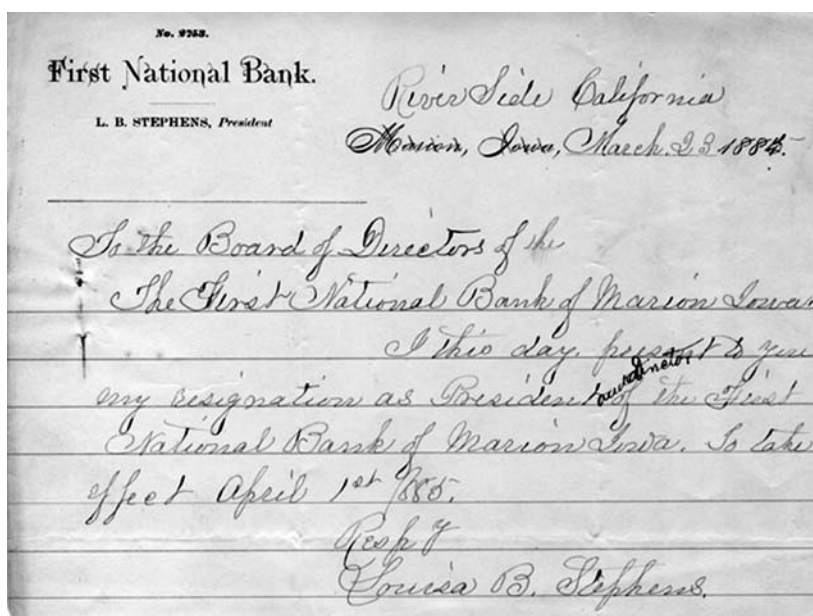 No. 2753.
First National Bank.
L. B. STEPHENS, President
River Side California
Marion, Iowa, March. 23 1885.
To the Board of Directors of the
The First National Bank of Marion Iowa.
I this day. present to you
and director
my resignation as President of the First
National Bank of Marion Iowa. To take
effect April 1st 1885.
Resp y
Louisa B. Stephens.